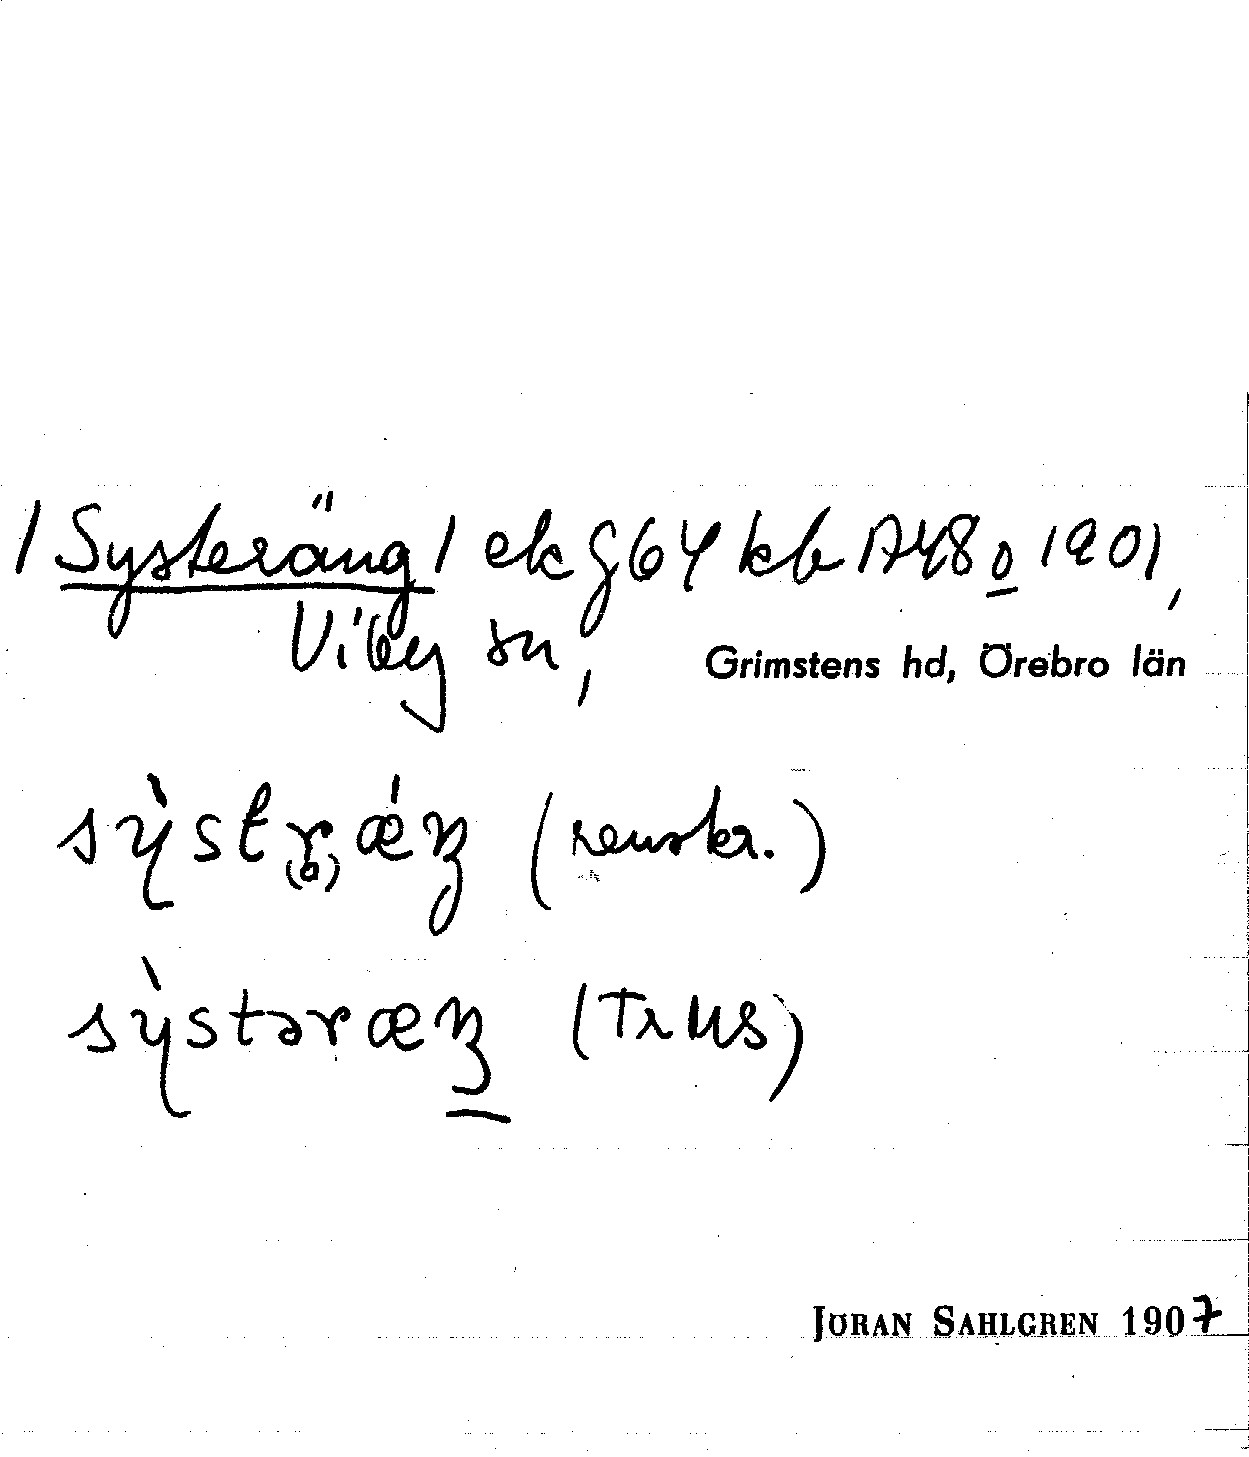 /Systeräng/ ek g 64 kb A48o 1901,
Viby sn, Grimstens hd, Örebro län
(renskr.)
sỳstəræŋ (Tr MS)
JÖRAN SAHLGREN 1907